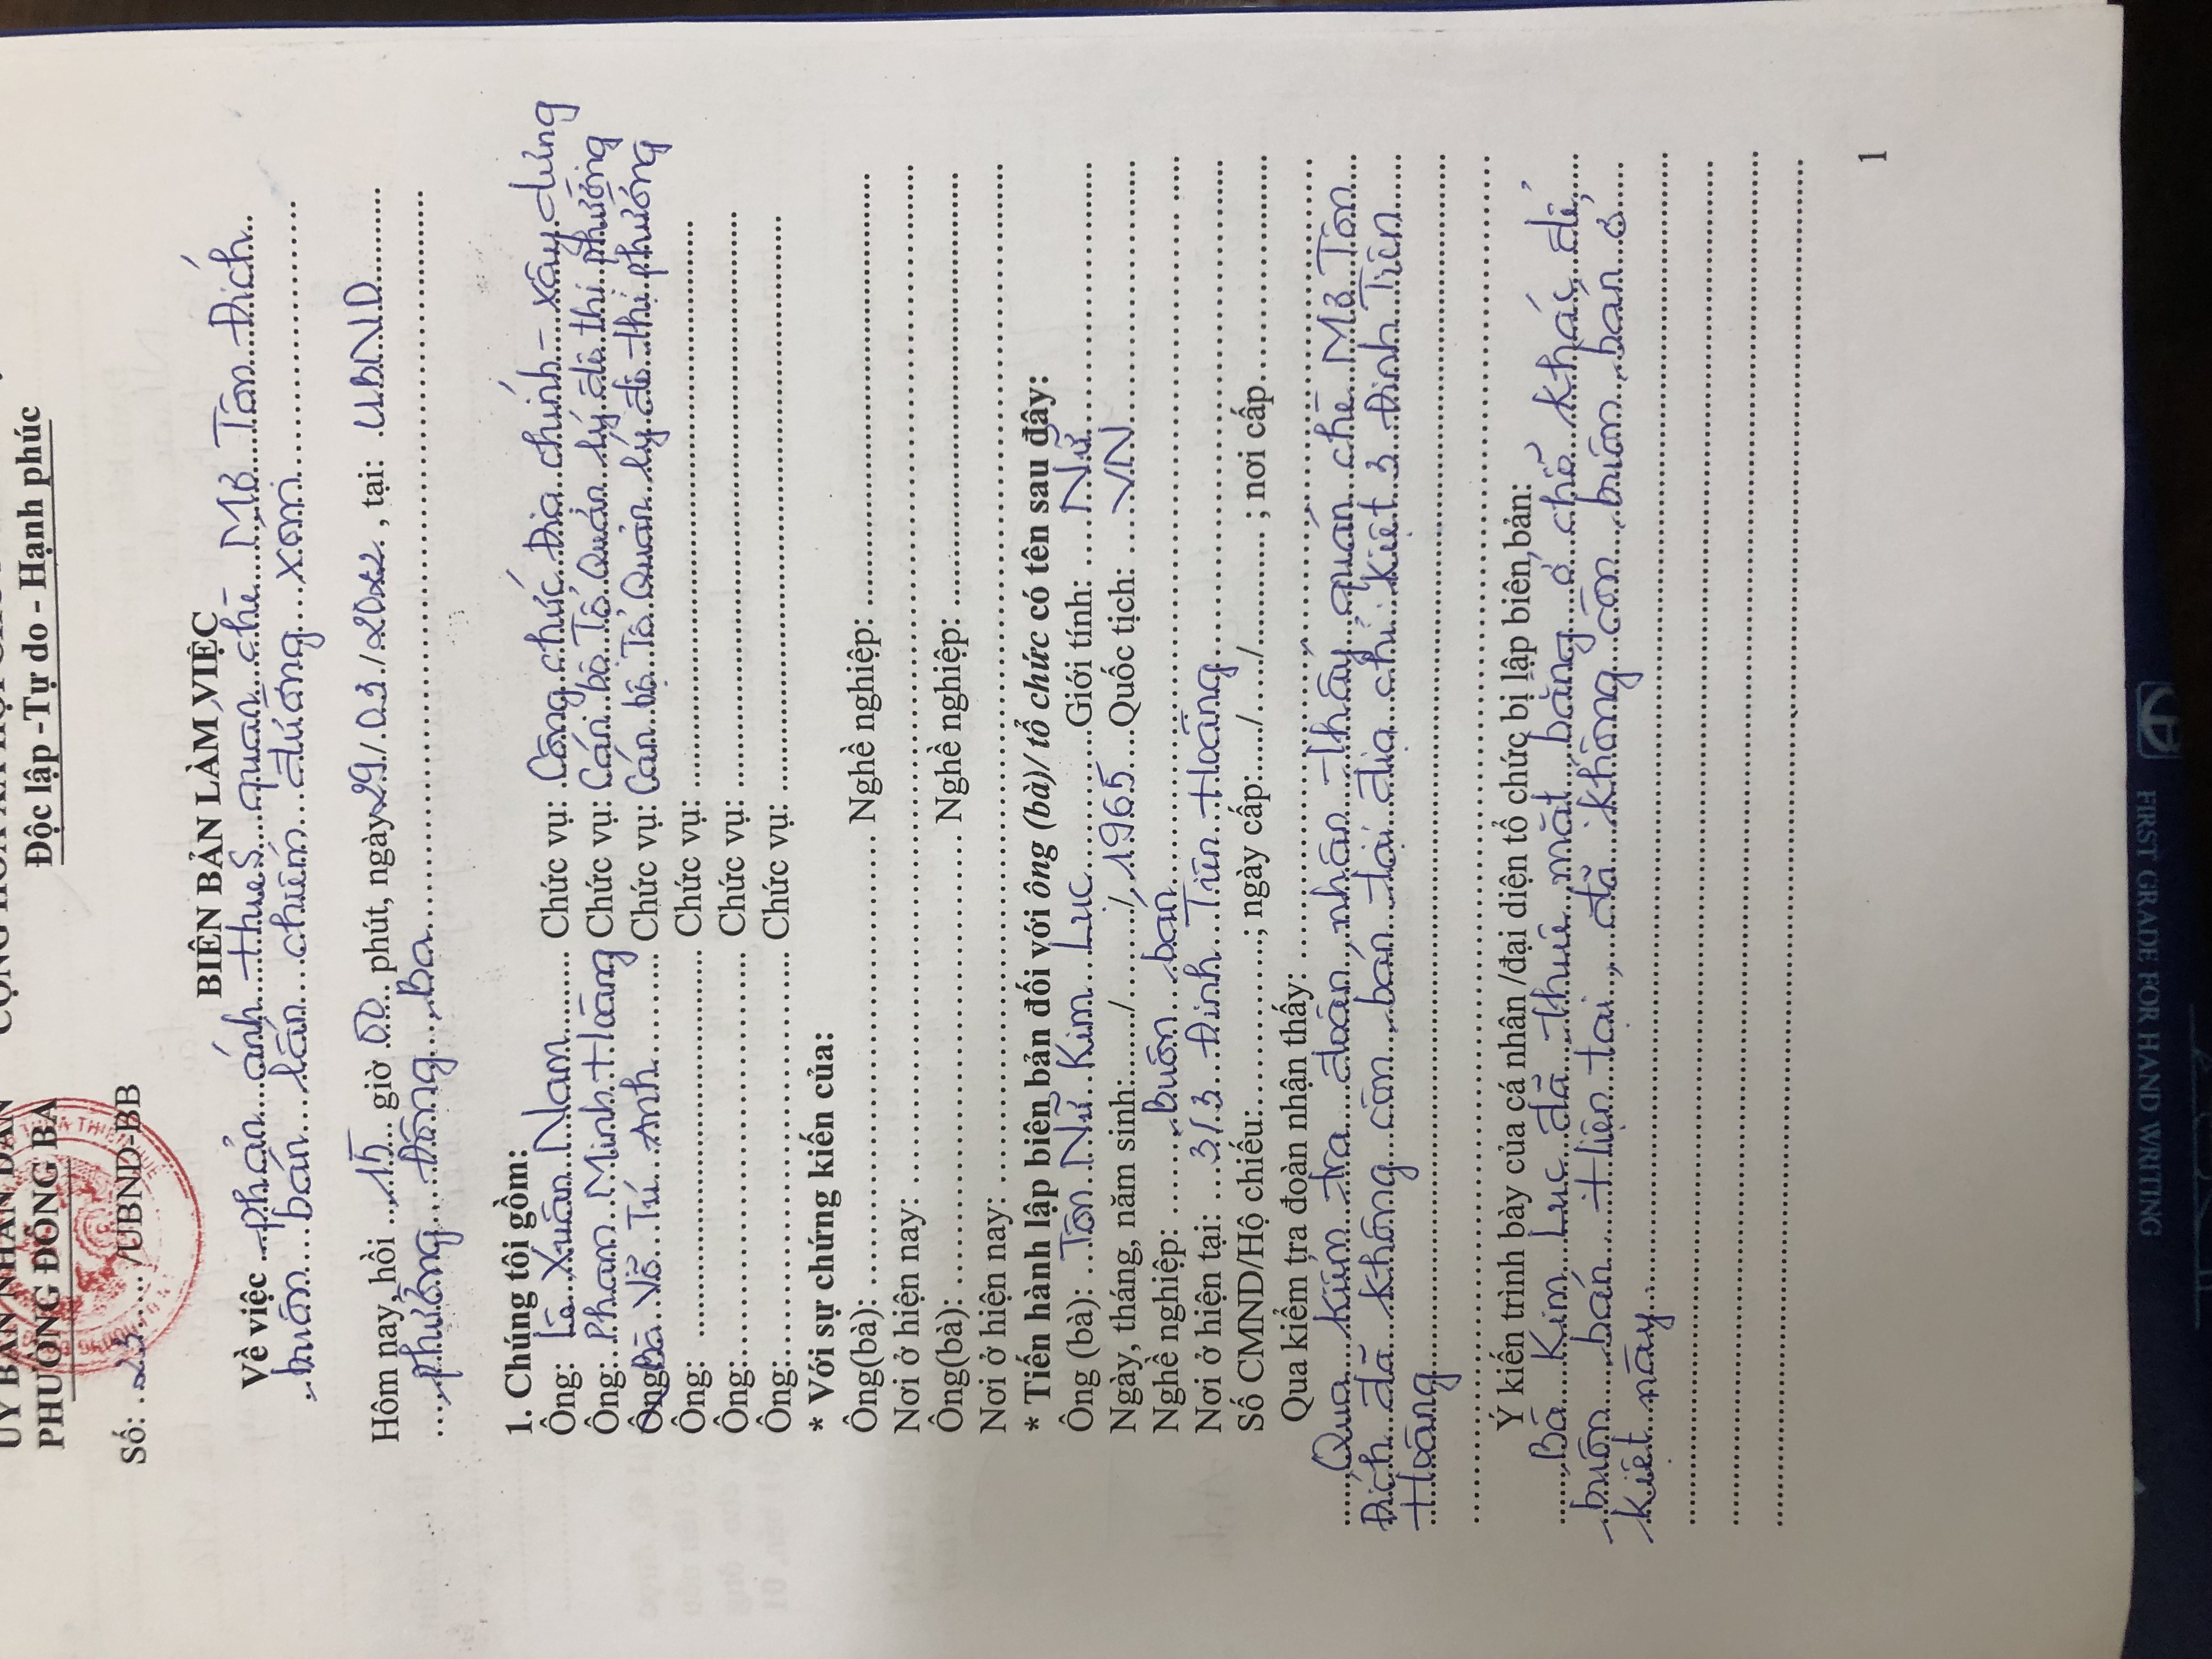 ỦY BAN NHÂN DÂN
PHƯỜNG ĐÔNG BA
Độc lập -Tự do - Hạnh phúc
Số: 25 /UBND-BB
BIÊN BẢN LÀM VIỆC
Về việc phản ánh quán chè Mợ Tôn Đích
buôn bán lấn chiếm đường xóm
Hôm nay, hồi 15 giờ 00 phút, ngày 29/03/2022, tại: UBND
phường Đông Ba
1. Chúng tôi gồm:
Ông: Lê Xuân Nam Chức vụ: Công chức Địa chính - xây dựng
Ông: Phạm Minh Hoàng Chức vụ: Cán bộ Tổ Quản lý đô thị phường
Ông Bà Võ Tú Anh Chức vụ: Cán bộ Tổ Quản lý đô thị phường
Ông: Chức vụ:
Ông: Chức vụ:
Ông: Chức vụ:
* Với sự chứng kiến của:
Ông(bà): Nghề nghiệp:
Nơi ở hiện nay:
Ông(bà): Nghề nghiệp:
Nơi ở hiện nay
* Tiến hành lập biên bản đối với ông (bà)/ tổ chức có tên sau đây:
Ông (bà): Tôn Nữ Kim Luc Giới tính: Nữ
Ngày, tháng, năm sinh: / / 1965 Quốc tịch: VN
Nghề nghiệp: Buôn bán
Nơi ở hiện tại: 3/3 Đinh Tiên Hoàng
Số CMND/Hộ chiếu: ; ngày cấp: / / ; nơi cấp
Qua kiểm tra đoàn nhận thấy:
Qua kiểm tra đoàn nhận thấy quán chè Mợ Tôn
Đích đã không còn bán tại địa chỉ kiệt 3 Đinh Tiên
Hoàng
Ý kiến trình bày của cá nhân /đại diện tổ chức bị lập biên bản:
Bà Kim Luc đã thuê mặt bằng ở chỗ khác để
buôn bán. Hiện tại, đã không còn buôn bán ở
kiệt này.
1
FIRST GRADE FOR HAND WRITING